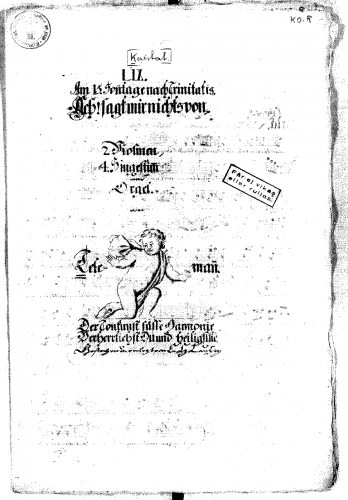 K O. 8
Kantat
LIX.
Am 15 Sontage nach Trinitatis.
Ach! sagt mir nichts von
2. Violinen
4. Singestim̄
Orgel.
Får ej vikas
eller rullas
Tele- man̄.
Der Tonkunst süsse Harmonie
Verherrlichst Du und heiligst sie